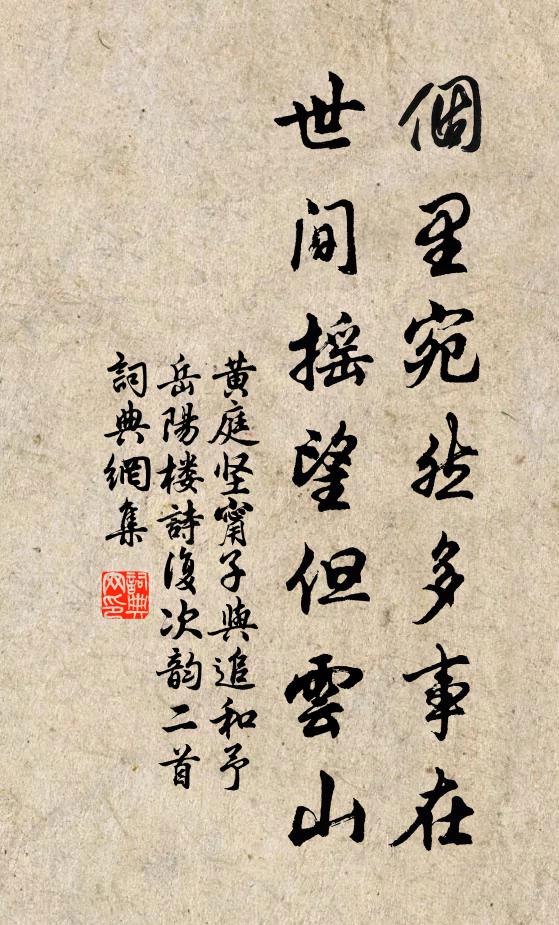 個里宛然多事在
世间摇望但雲山
黄庭坚甯子與追和予
岳陽楼詩復次韵二首
詞典網集
詞典
网印